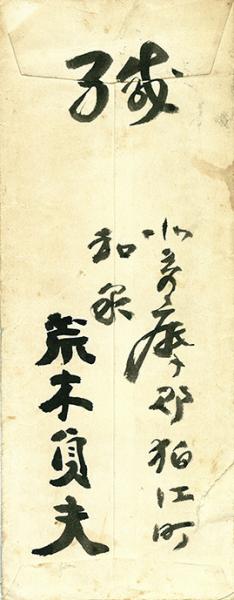 緘
北多摩郡狛江町
和泉
荒木貞夫